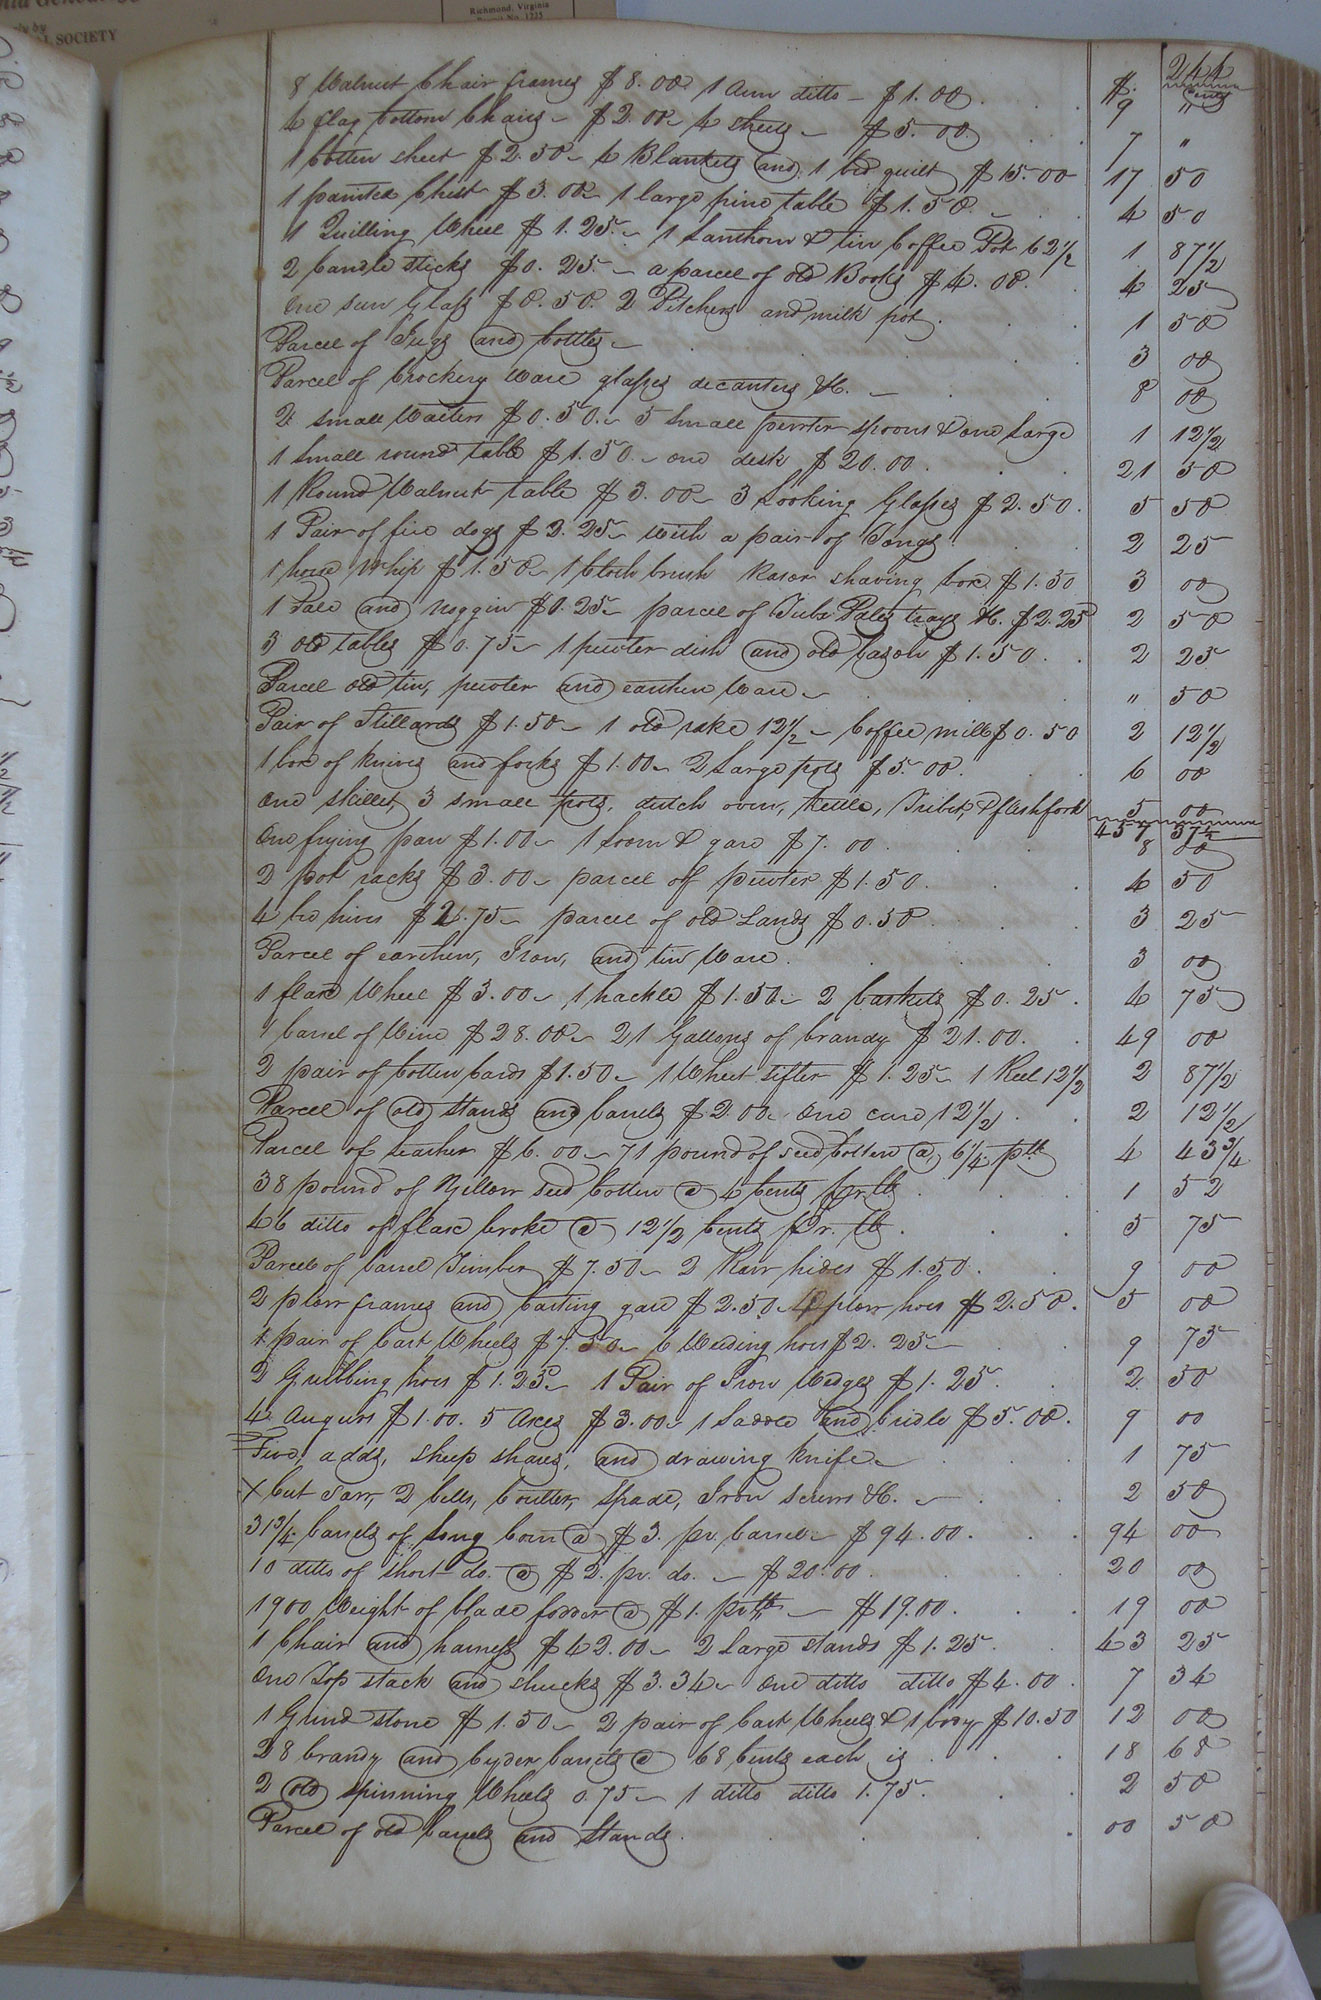 Richmond, Virginia
Permit No. 1225
SOCIETY
244
$. Cents
8 Walnut Chair frames $8.00 1 Arm ditto – $1.00. 9 "
4 flag bottom Chairs – $2.00 – 4 sheets – $5.00 7 "
1 Cotten sheet $2.50 – 4 Blankets and 1 bed quilt $15.00 17 50
1 painted Chest $3.00 – 1 large pine table $1.50. 4 50
1 Quilling Wheel $1.25. – 1 Lanthorn & tin Coffee Pot 62½ 1 87½
2 Candle sticks $0.25. – a parcel of old Books $4.00. 4 25
One sun Glass $0.50. 2 Pitchers and milk pot. 1 50
Parcel of Jugs and bottles – 3 00
Parcel of Crockery Ware glasses decanters &C. – 8 00
2 small Waiters $0.50. – 5 small pewter spoons & one large 1 12½
1 small round table $1.50. – one desk $20.00. 21 50
1 Round Walnut table $3.00 – 3 Looking Glasses $2.50. 5 50
1 Pair of fire dogs $2.25 – with a pair of Tongs. 2 25
1 horse Whip $1.50 – 1 Cloth brush Rasor shaving box $1.50 3 00
1 Pale and noggin $0.25 – parcel of Tubs Pales trays &C. $2.25 2 50
3 old tables $0.75 – 1 pewter dish and old bason $1.50. 2 25
Parcel old tin, pewter and earthen Ware – " 50
Pair of Stillards $1.50 – 1 old rake 12½ – Coffee mill $0.50 2 12½
1 box of knives and forks $1.00 – 2 Large pots $5.00. 6 00
One skillet, 3 small pots, dutch oven, kettle, Tribet, & fleshfork 5 00
457 37½
One frying pan $1.00 – 1 Loom & gare $7.00 8 00
2 pot racks $3.00 – parcel of pewter $1.50. 4 50
4 bee hives $2.75 – parcel of old Lands $0.50 3 25
Parcel of earthen, Iron, and tin Ware. 3 00
1 flax Wheel $3.00 – 1 hackle $1.50 – 2 baskets $0.25. 4 75
1 barrel of Wine $28.00 – 21 Gallons of brandy $21.00. 49 00
2 pair of Cotten Cards $1.50 – 1 Wheet sifter $1.25 – 1 Reel 12½ 2 87½
Parcel of old stands and barrels $2.00 – One card 12½. 2 12½
Parcel of Leather $6.00 – 71 pound of seed Cotten @ 6¼ pr lb 4 43¾
38 pound of Yellow seed Cotten @ 4 Cents pr lb 1 52
46 ditto of flax broke @ 12½ Cents pr. lb. 5 75
Parcel of barrel Timber $7.50 – 2 Raw hides $1.50. 9 00
2 plow frames and Carting gare $2.50. 4 plow hoes $2.50. 5 00
1 pair of Cart Wheels $7.50 – 6 Weeding hoes $2.25 – 9 75
2 Grubbing hoes $1.25 – 1 Pair of Iron Wedges $1.25. 2 50
4 Augurs $1.00. 5 Axes $3.00 – 1 Saddle and bridle $5.00. 9 00
Five adds, sheep shares, and drawing knife – 1 75
X Cut saw, 2 bells, Coulter, spade, Iron screws &C. – 2 50
31¾ barrels of long Corn @ $3. pr. barrel – $94.00. 94 00
10 ditto of short do. @ $2. pr. do. – $20.00. 20 00
1900 Weight of blade fodder @ $1. – $19.00. 19 00
1 Chair and harness $42.00 – 2 large stands $1.25. 43 25
One Top stack and shucks $3.34 – One ditto ditto $4.00. 7 34
1 Grind stone $1.50 – 2 pair of Cart Wheels & 1 body $10.50 12 00
28 brandy and Cyder barrels @ 68 Cents each is 18 68
2 old spinning Wheels 0.75 – 1 ditto ditto 1.75. 2 50
Parcel of old barrels and stands. 00 50